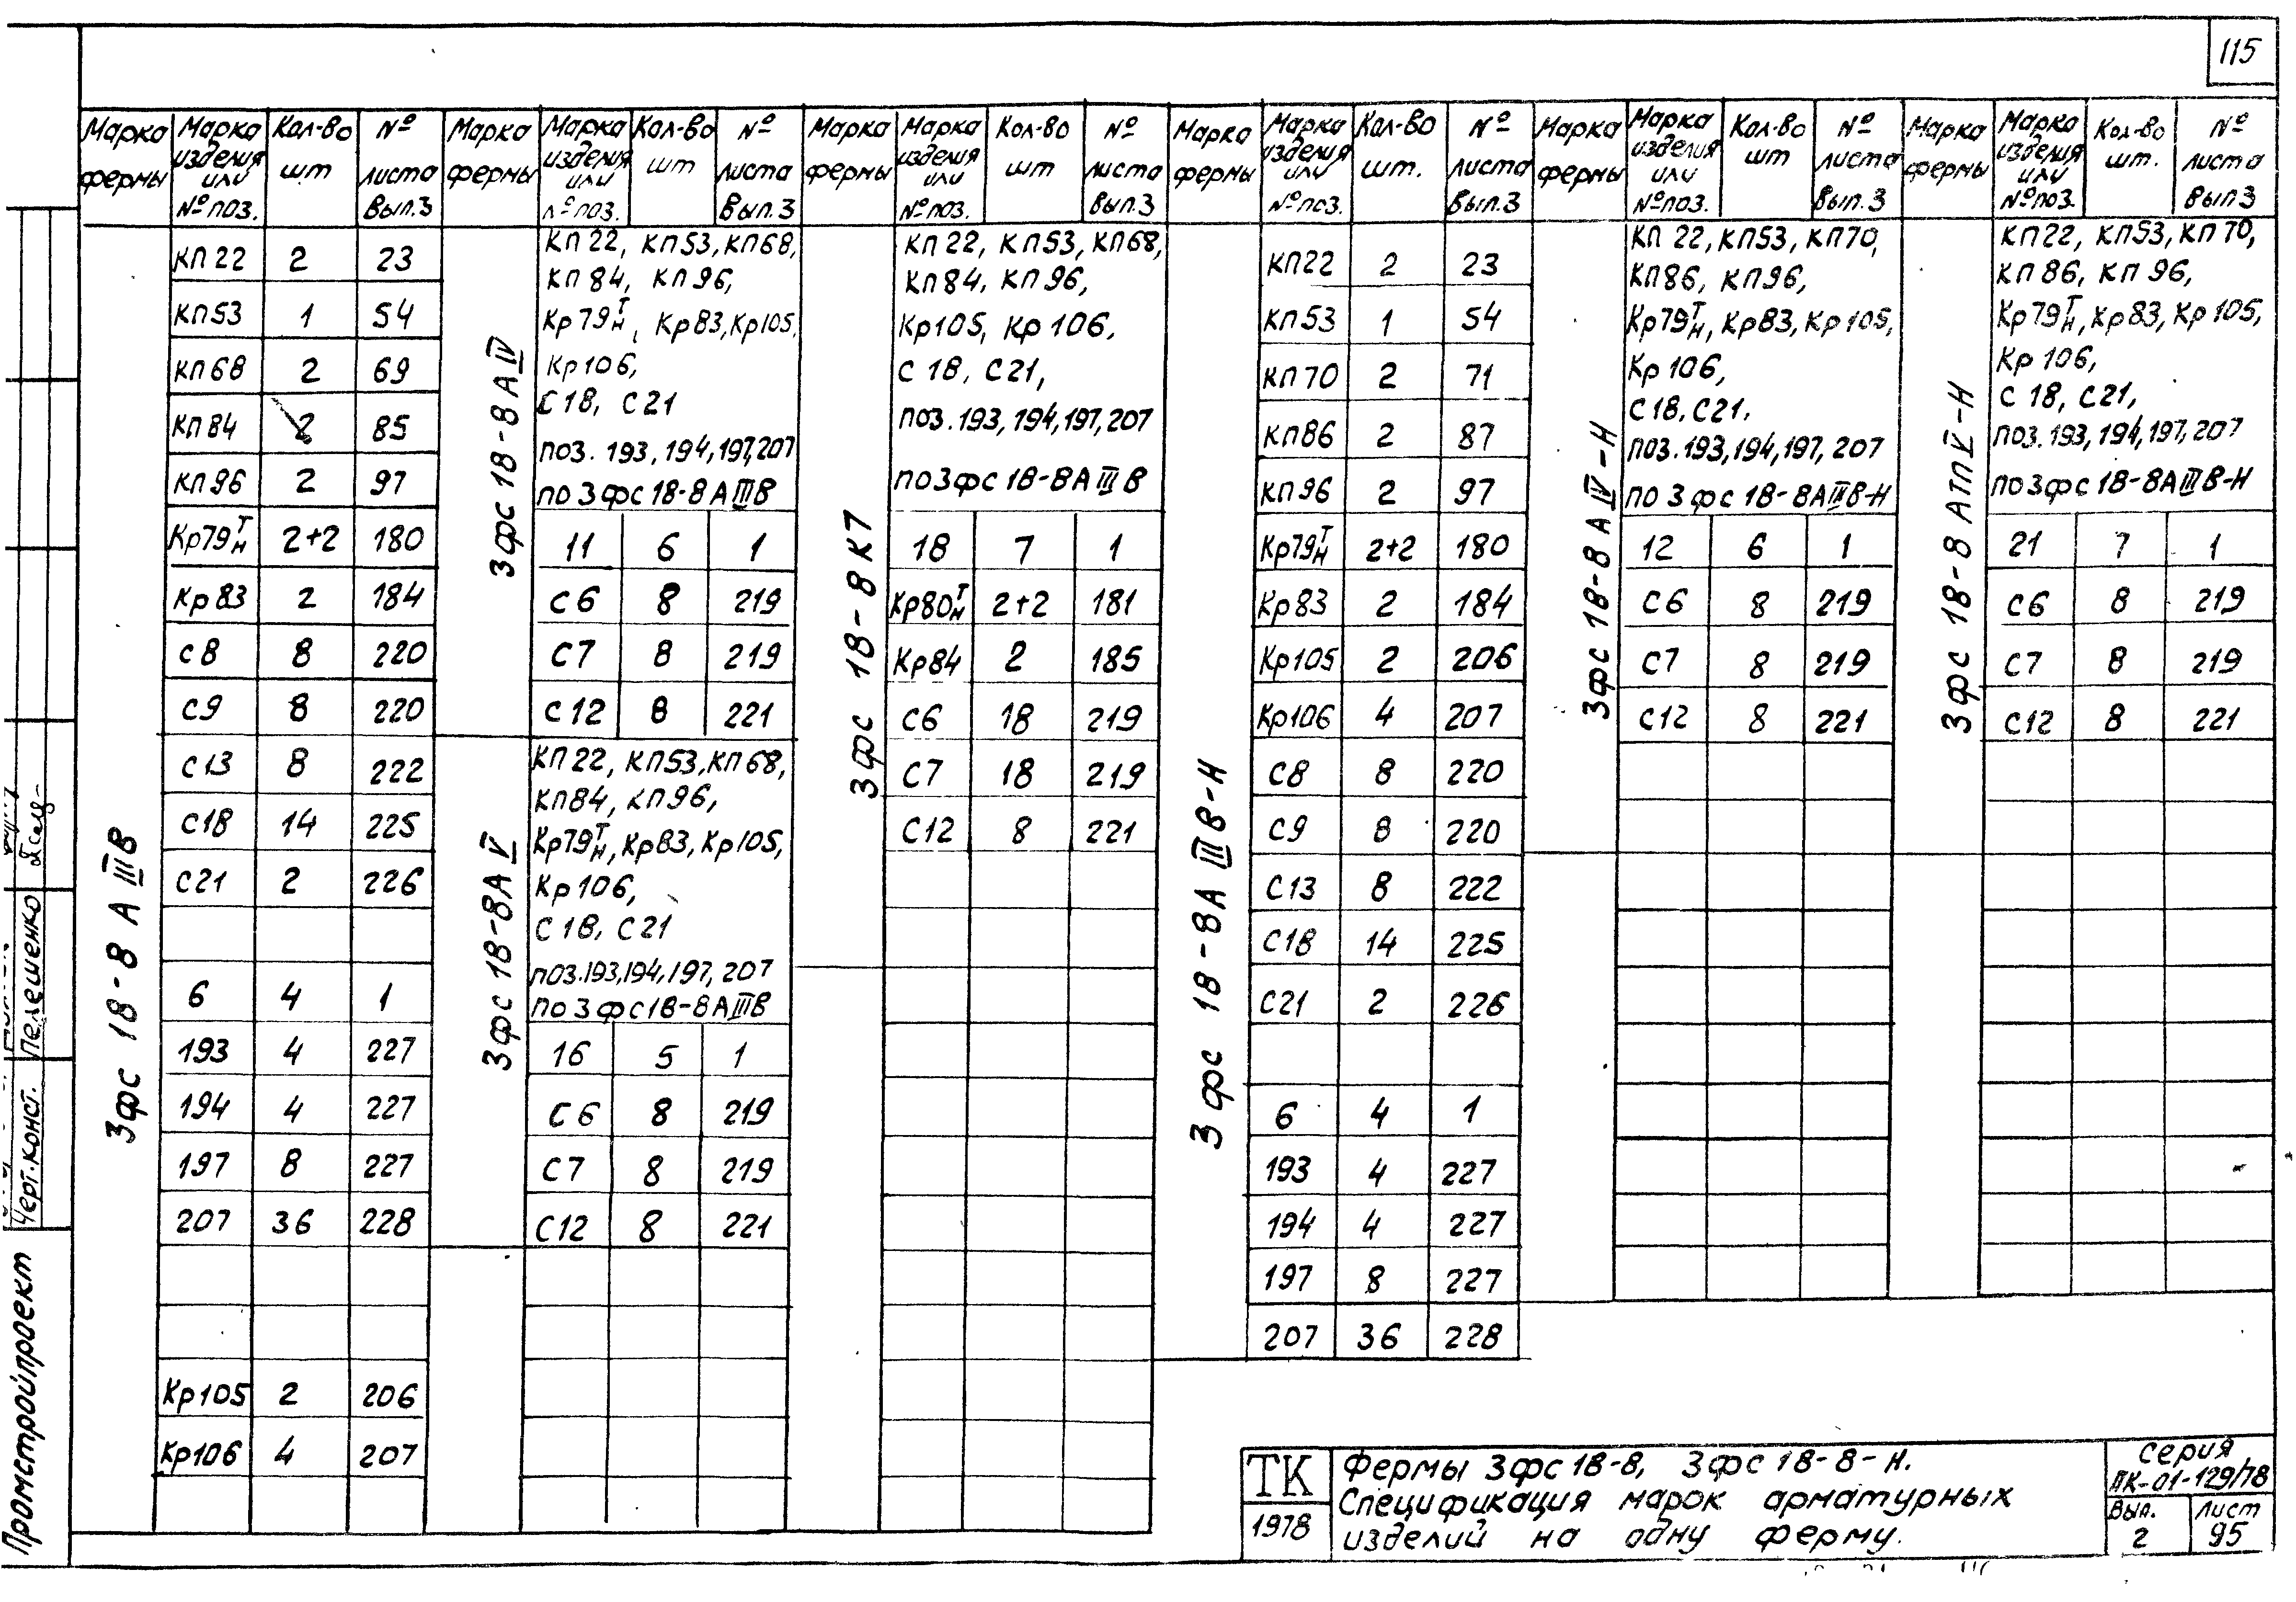 115
Марка фермы | Марка изделия или № поз. | Кол-во шт | № листа Вып.3
3фс 18-8 А III В
КП22 2 23
КП53 1 54
КП68 2 69
КП84 2 85
КП96 2 97
Кр79 Т Н 2+2 180
Кр83 2 184
С8 8 220
С9 8 220
С13 8 222
С18 14 225
С21 2 226
6 4 1
193 4 227
194 4 227
197 8 227
207 36 228
Кр105 2 206
Кр106 4 207
Марка фермы | Марка изделия или № поз. | Кол-во шт | № листа Вып.3
3фс 18-8 А IV
КП22, КП53, КП68,
КП84, КП96,
Кр79 Т Н, Кр83, Кр105,
Кр106,
С18, С21
поз. 193, 194, 197, 207
по 3фс 18-8 А III В
11 6 1
С6 8 219
С7 8 219
С12 8 221
3фс 18-8А V
КП22, КП53, КП68,
КП84, КП96,
Кр79 Т Н, Кр83, Кр105,
Кр106,
С18, С21
поз. 193, 194, 197, 207
по 3фс18-8 А III В
16 5 1
С6 8 219
С7 8 219
С12 8 221
Марка фермы | Марка изделия или № поз. | Кол-во шт | № листа Вып.3
3фс 18-8 К7
КП22, КП53, КП68,
КП84, КП96,
Кр105, Кр106,
С18, С21,
поз. 193, 194, 197, 207
по 3фс 18-8А III В
18 7 1
Кр80 Т Н 2+2 181
Кр84 2 185
С6 18 219
С7 18 219
С12 8 221
Марка фермы | Марка изделия или № поз. | Кол-во шт. | № листа Вып.3
3фс 18-8А III В-Н
КП22 2 23
КП53 1 54
КП70 2 71
КП86 2 87
КП96 2 97
Кр79 Т Н 2+2 180
Кр83 2 184
Кр105 2 206
Кр106 4 207
С8 8 220
С9 8 220
С13 8 222
С18 14 225
С21 2 226
6 4 1
193 4 227
194 4 227
197 8 227
207 36 228
Марка фермы | Марка изделия или № поз. | Кол-во шт | № листа Вып.3
3фс 18-8 А IV-Н
КП22, КП53, КП70,
КП86, КП96,
Кр79 Т Н, Кр83, Кр105,
Кр106,
С18, С21,
поз. 193, 194, 197, 207
по 3фс 18-8А III В-Н
12 6 1
С6 8 219
С7 8 219
С12 8 221
Марка фермы | Марка изделия или № поз. | Кол-во шт. | № листа Вып 3
3фс 18-8 АТП V-Н
КП22, КП53, КП70,
КП86, КП96,
Кр79 Т Н, Кр83, Кр105,
Кр106,
С18, С21,
поз. 193, 194, 197, 207
по 3фс 18-8А III В-Н
21 7 1
С6 8 219
С7 8 219
С12 8 221
Черт. конст. Пелешенко
Промстройпроект
ТК
1978
Фермы 3фс18-8, 3фс18-8-Н.
Спецификация марок арматурных
изделий на одну ферму.
Серия
ПК-01-129/78
Вып. 2
Лист 95